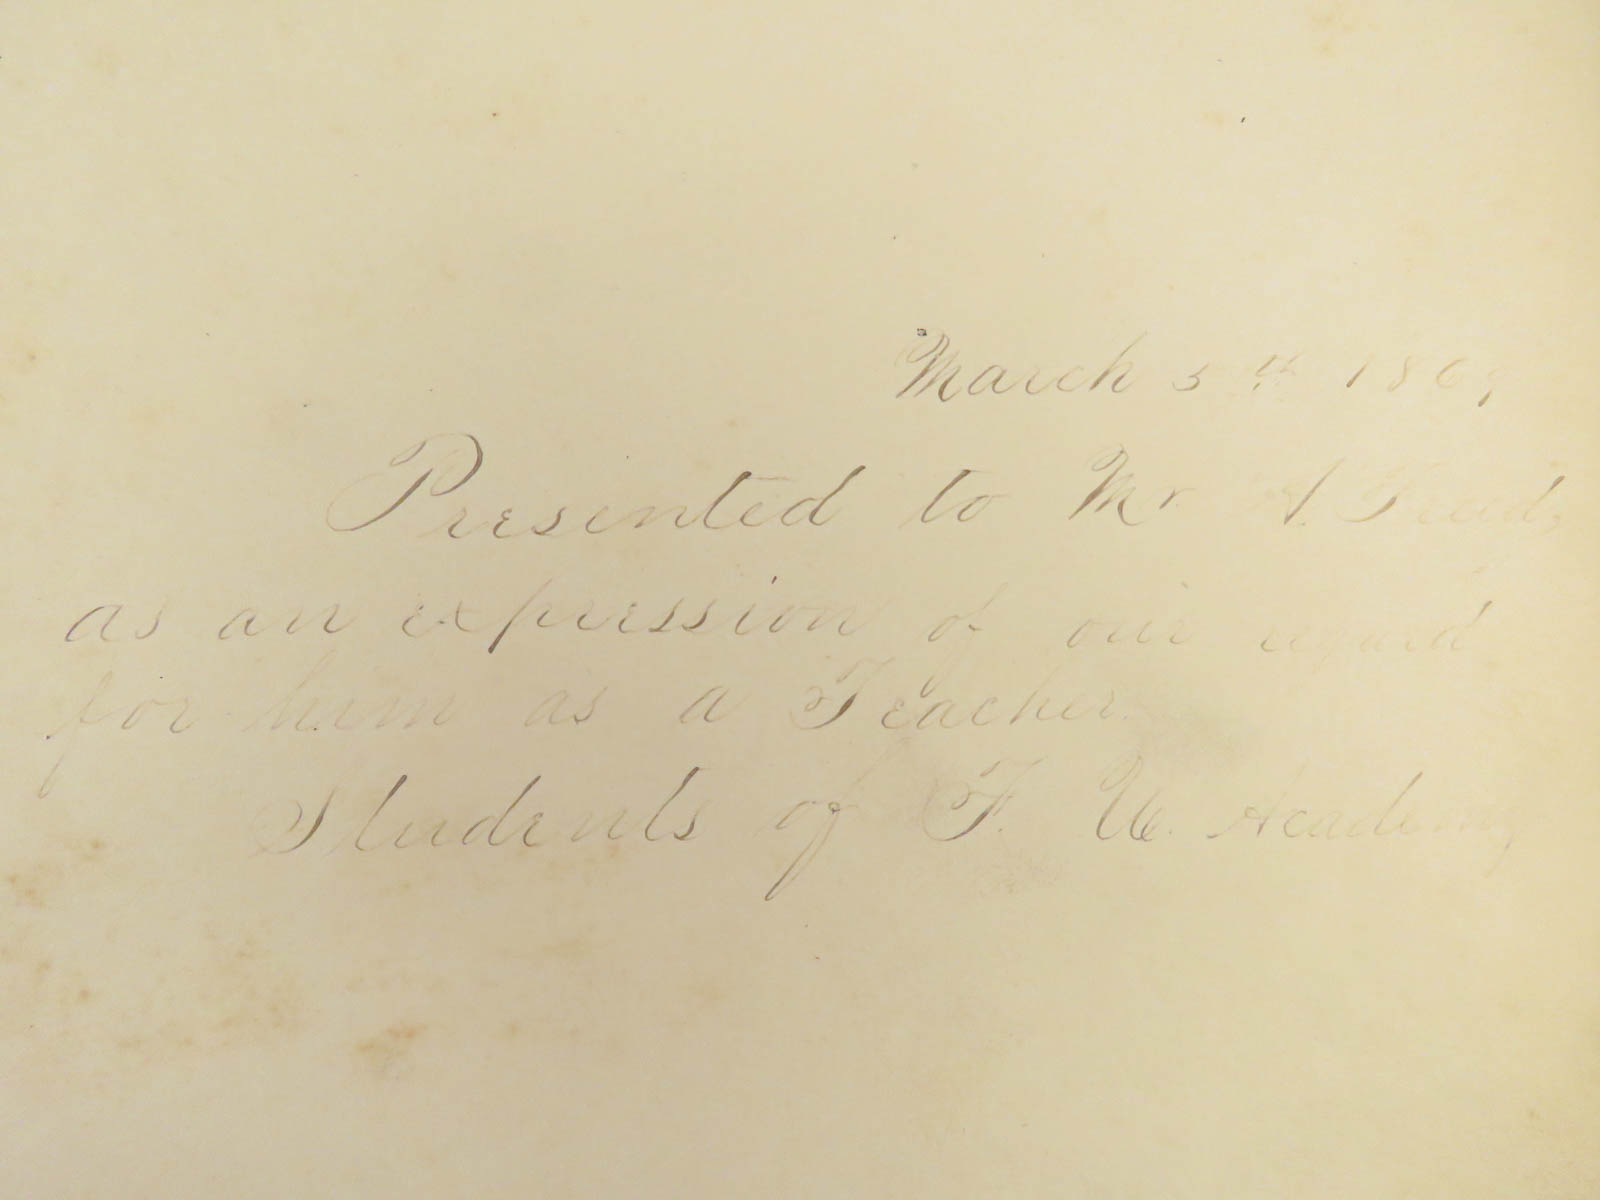 March 5th 1869
Presented to Mr. A.
as an expression of our regard
for him as a Teacher.
Students of F. U. Academy